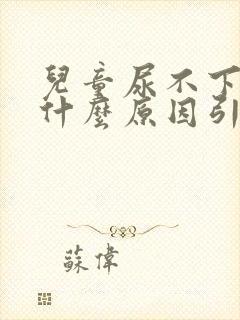 兒童尿不下
什麼原因引
蘇偉